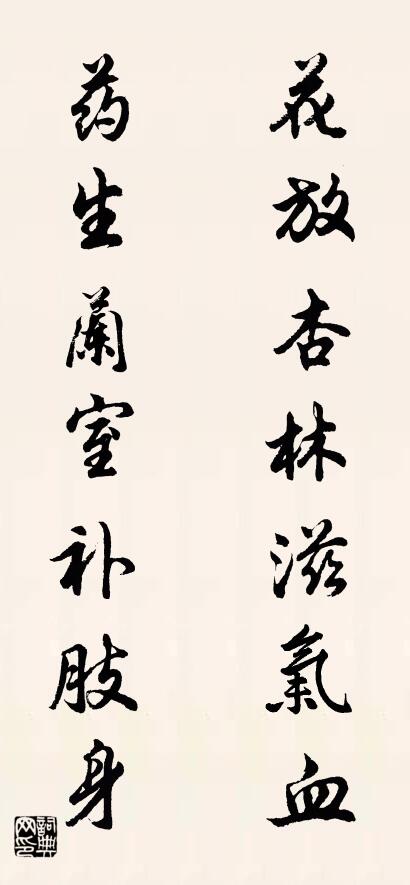 花放杏林滋氣血
药生蘭室补肢身
詞典网印